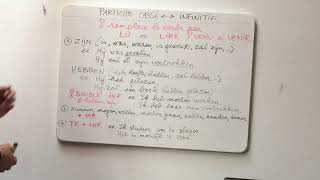 PARTICIPE PASSÉ <-> INFINITIF
! remplace le verbe par
LU ou LIRE / VENU ou VENIR
① ZIJN (is, was, waren, is geweest, zal zijn, ...)
ex Hij was gevallen
Hij zal al zijn vertrokken
HEBBEN (heb, heeft, hadden, zal hebben, ...)
ex Hij had gelezen
Hij zal een boek hebben gelezen
! DOUBLE INF. ex Ik heb moeten werken
Ik het
② kunnen, mogen, willen, moeten, gaan, zullen, zouden, komen
+ INF.
③ TE + INF. ex Ik studeer om te slagen
Het is moeilijk te zien